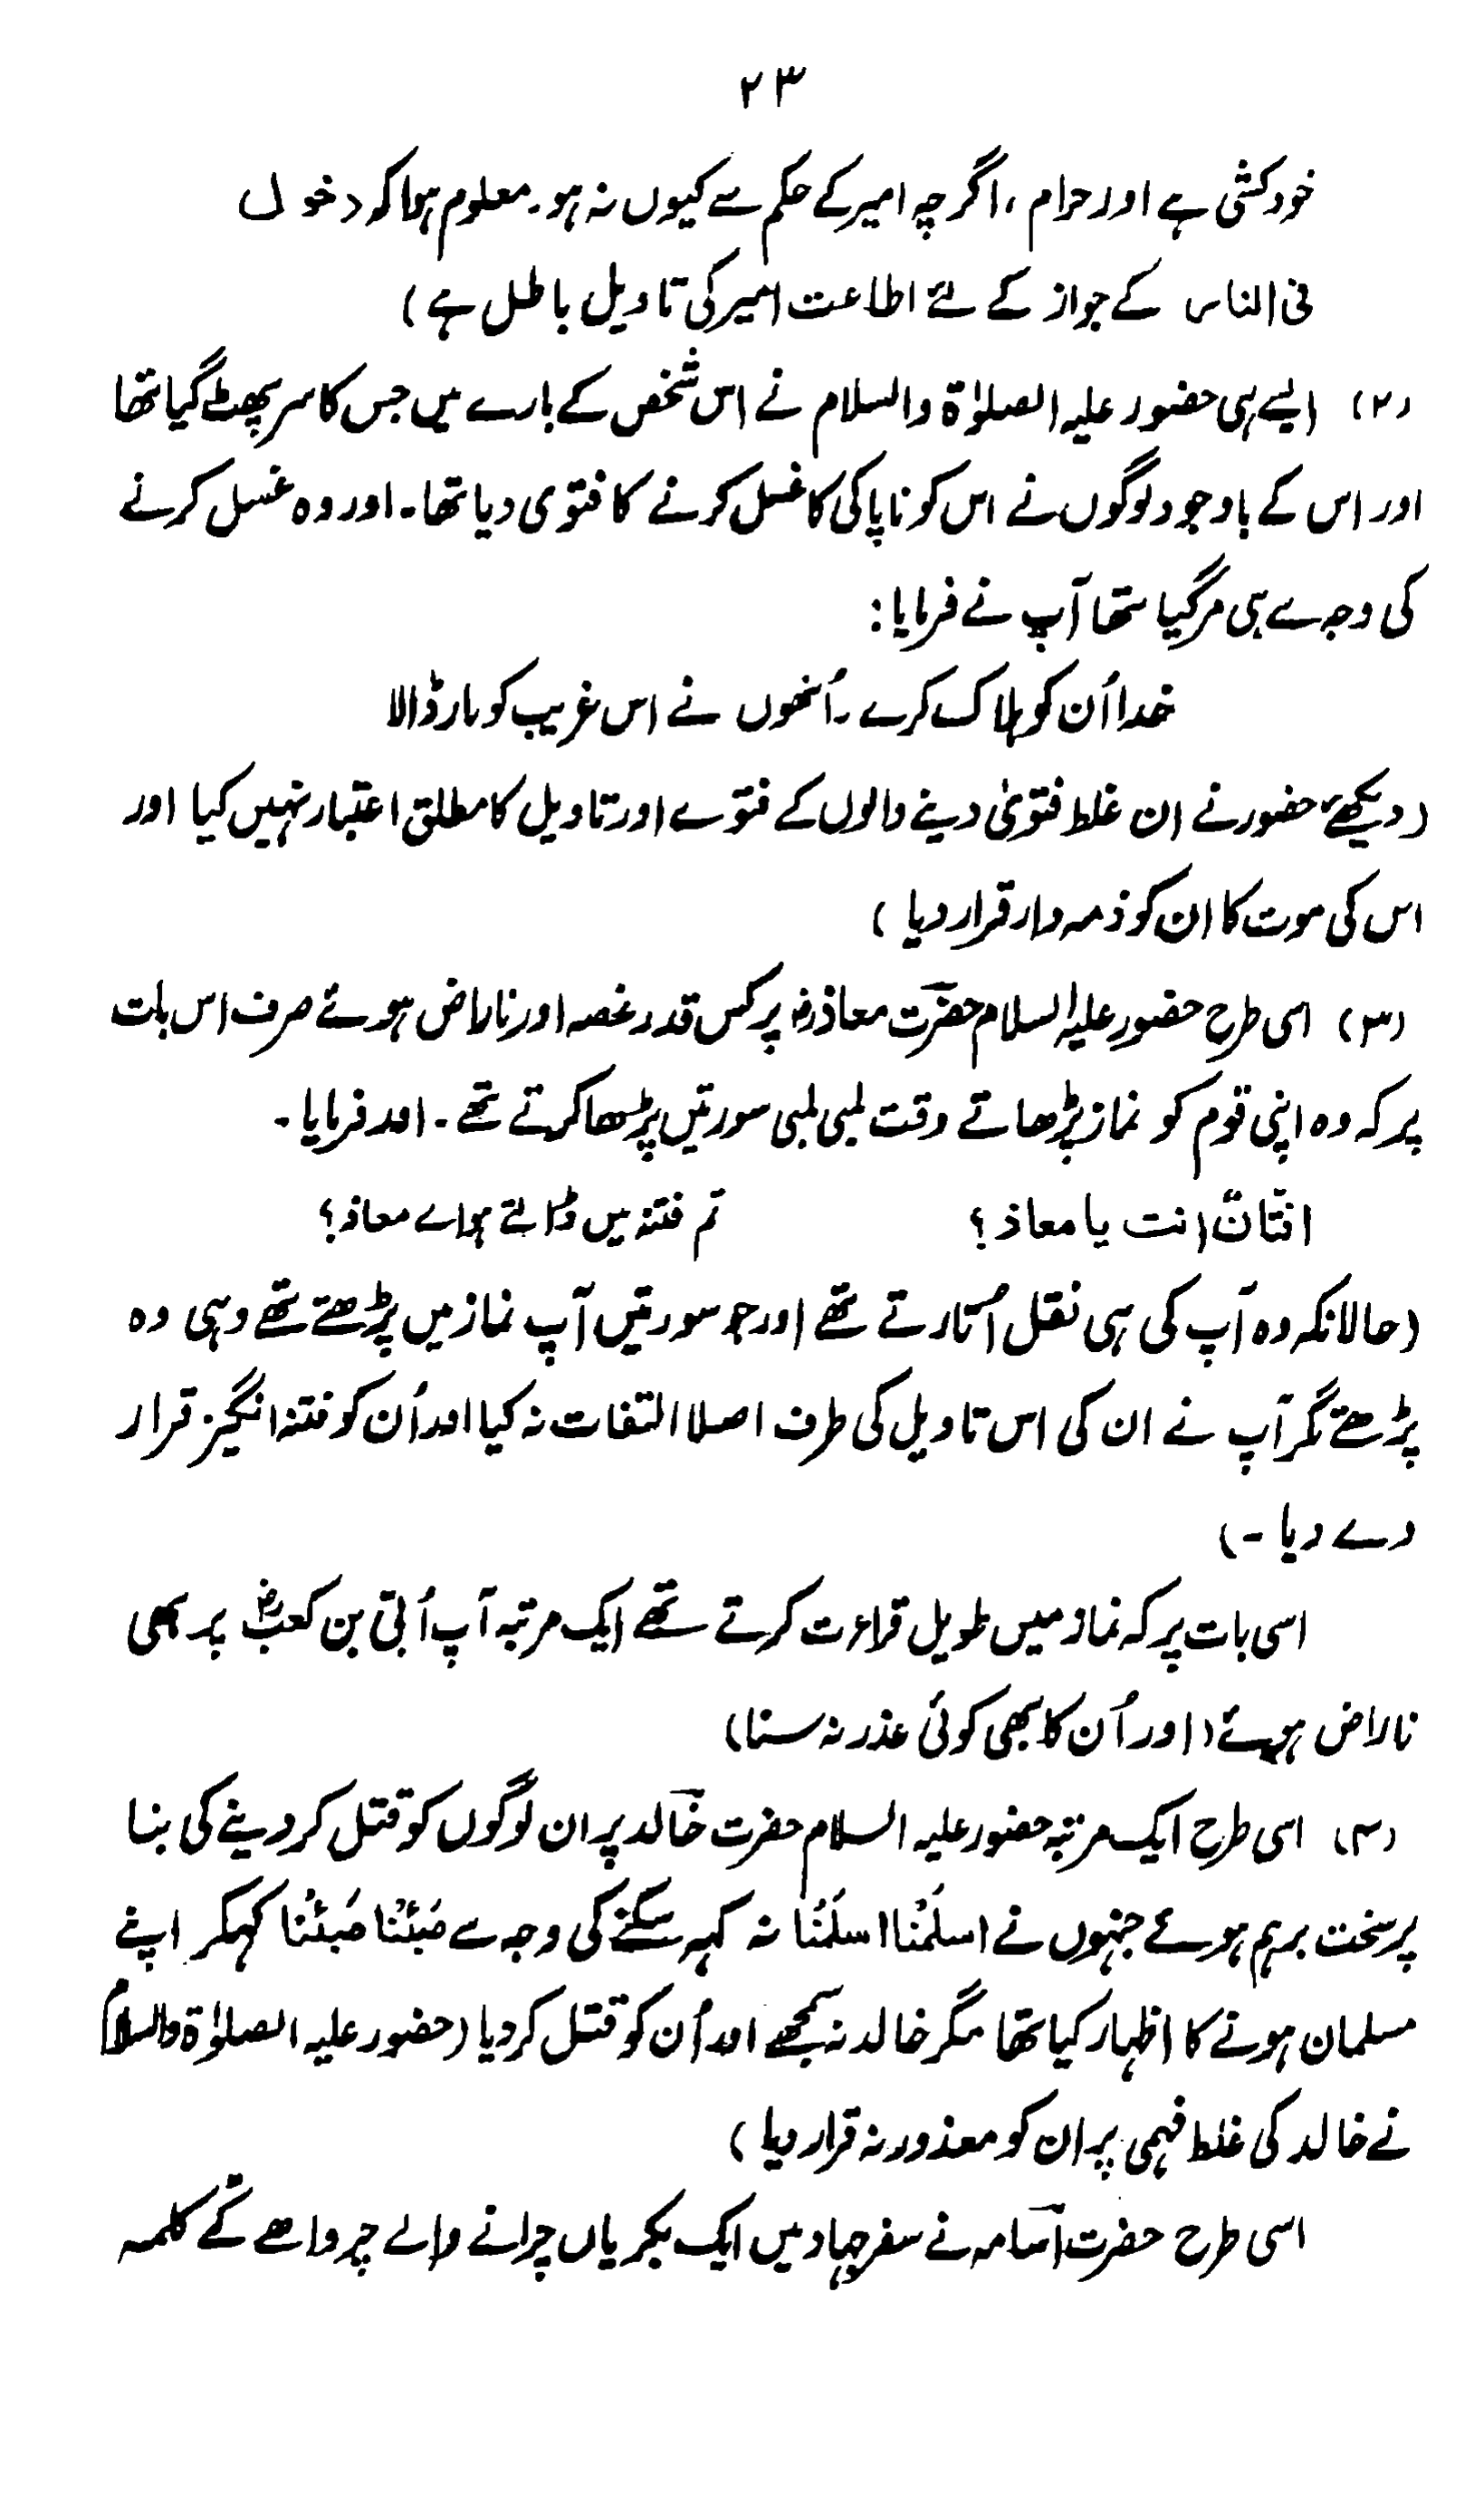 ۲۳
خودکشی ہے اور حرام، اگرچہ امیر کے حکم سے کیوں نہ ہو۔ معلوم ہوا کہ دخول
فی الناس کے جواز کے لئے اطاعت امیر کی تاویل باطل ہے)
(۲) ایسے ہی حضور علیہ الصلوٰۃ والسلام نے اس شخص کے بارے میں جس کا سر پھٹ گیا تھا
اور اس کے باوجود لوگوں نے اس کو ناپاکی کا غسل کرنے کا فتوی دیا تھا۔ اور وہ غسل کرنے
کی وجہ سے ہی مر گیا تھا آپ نے فرمایا:
خدا اُن کو ہلاک کرے۔ اُنھوں نے اس غریب کو مار ڈالا
(دیکھئے حضور نے ان غلط فتویٰ دینے والوں کے فتوے اور تاویل کا مطلق اعتبار نہیں کیا اور
اس کی موت کا ان کو ذمہ دار قرار دیا)
(۳) اسی طرح حضور علیہ السلام حضرت معاذؓ پر کس قدر غصہ اور ناراض ہوئے صرف اس بات
پر کہ وہ اپنی قوم کو نماز پڑھاتے وقت لمبی لمبی سورتیں پڑھا کرتے تھے۔ اور فرمایا۔
افتانٌ انت یا معاذ؟ تم فتنہ میں ڈالتے ہو اے معاذ؟
(حالانکہ وہ آپ کی ہی نقل اُتارتے تھے اور جو سورتیں آپ نماز میں پڑھتے تھے وہی وہ
پڑھتے مگر آپ نے ان کی اس تاویل کی طرف اصلا التفات نہ کیا اور اُن کو فتنہ انگیز قرار
دے دیا۔)
اسی بات پر کہ نماز میں طویل قراءت کرتے تھے ایک مرتبہ آپ اُبَی بن کعبؓ پر بھی
ناراض ہوئے (اور اُن کا بھی کوئی عذر نہ سنا)
(۴) اسی طرح ایک مرتبہ حضور علیہ السلام حضرت خالد پر ان لوگوں کو قتل کر دینے کی بنا
پر سخت برہم ہوئے جنہوں نے اسلَمْنَا اسلَمْنَا نہ کہہ سکنے کی وجہ سے صَبَئْنَا صَبَئْنَا کہہ کر اپنے
مسلمان ہونے کا اظہار کیا تھا مگر خالد نہ سمجھے اور اُن کو قتل کر دیا (حضور علیہ الصلوٰۃ والسلام
نے خالد کی غلط فہمی پر ان کو معذور نہ قرار دیا)
اسی طرح حضرت اسامہ نے سفر جہاد میں ایک بکریاں چرانے والے چرواہے کے کلمہ